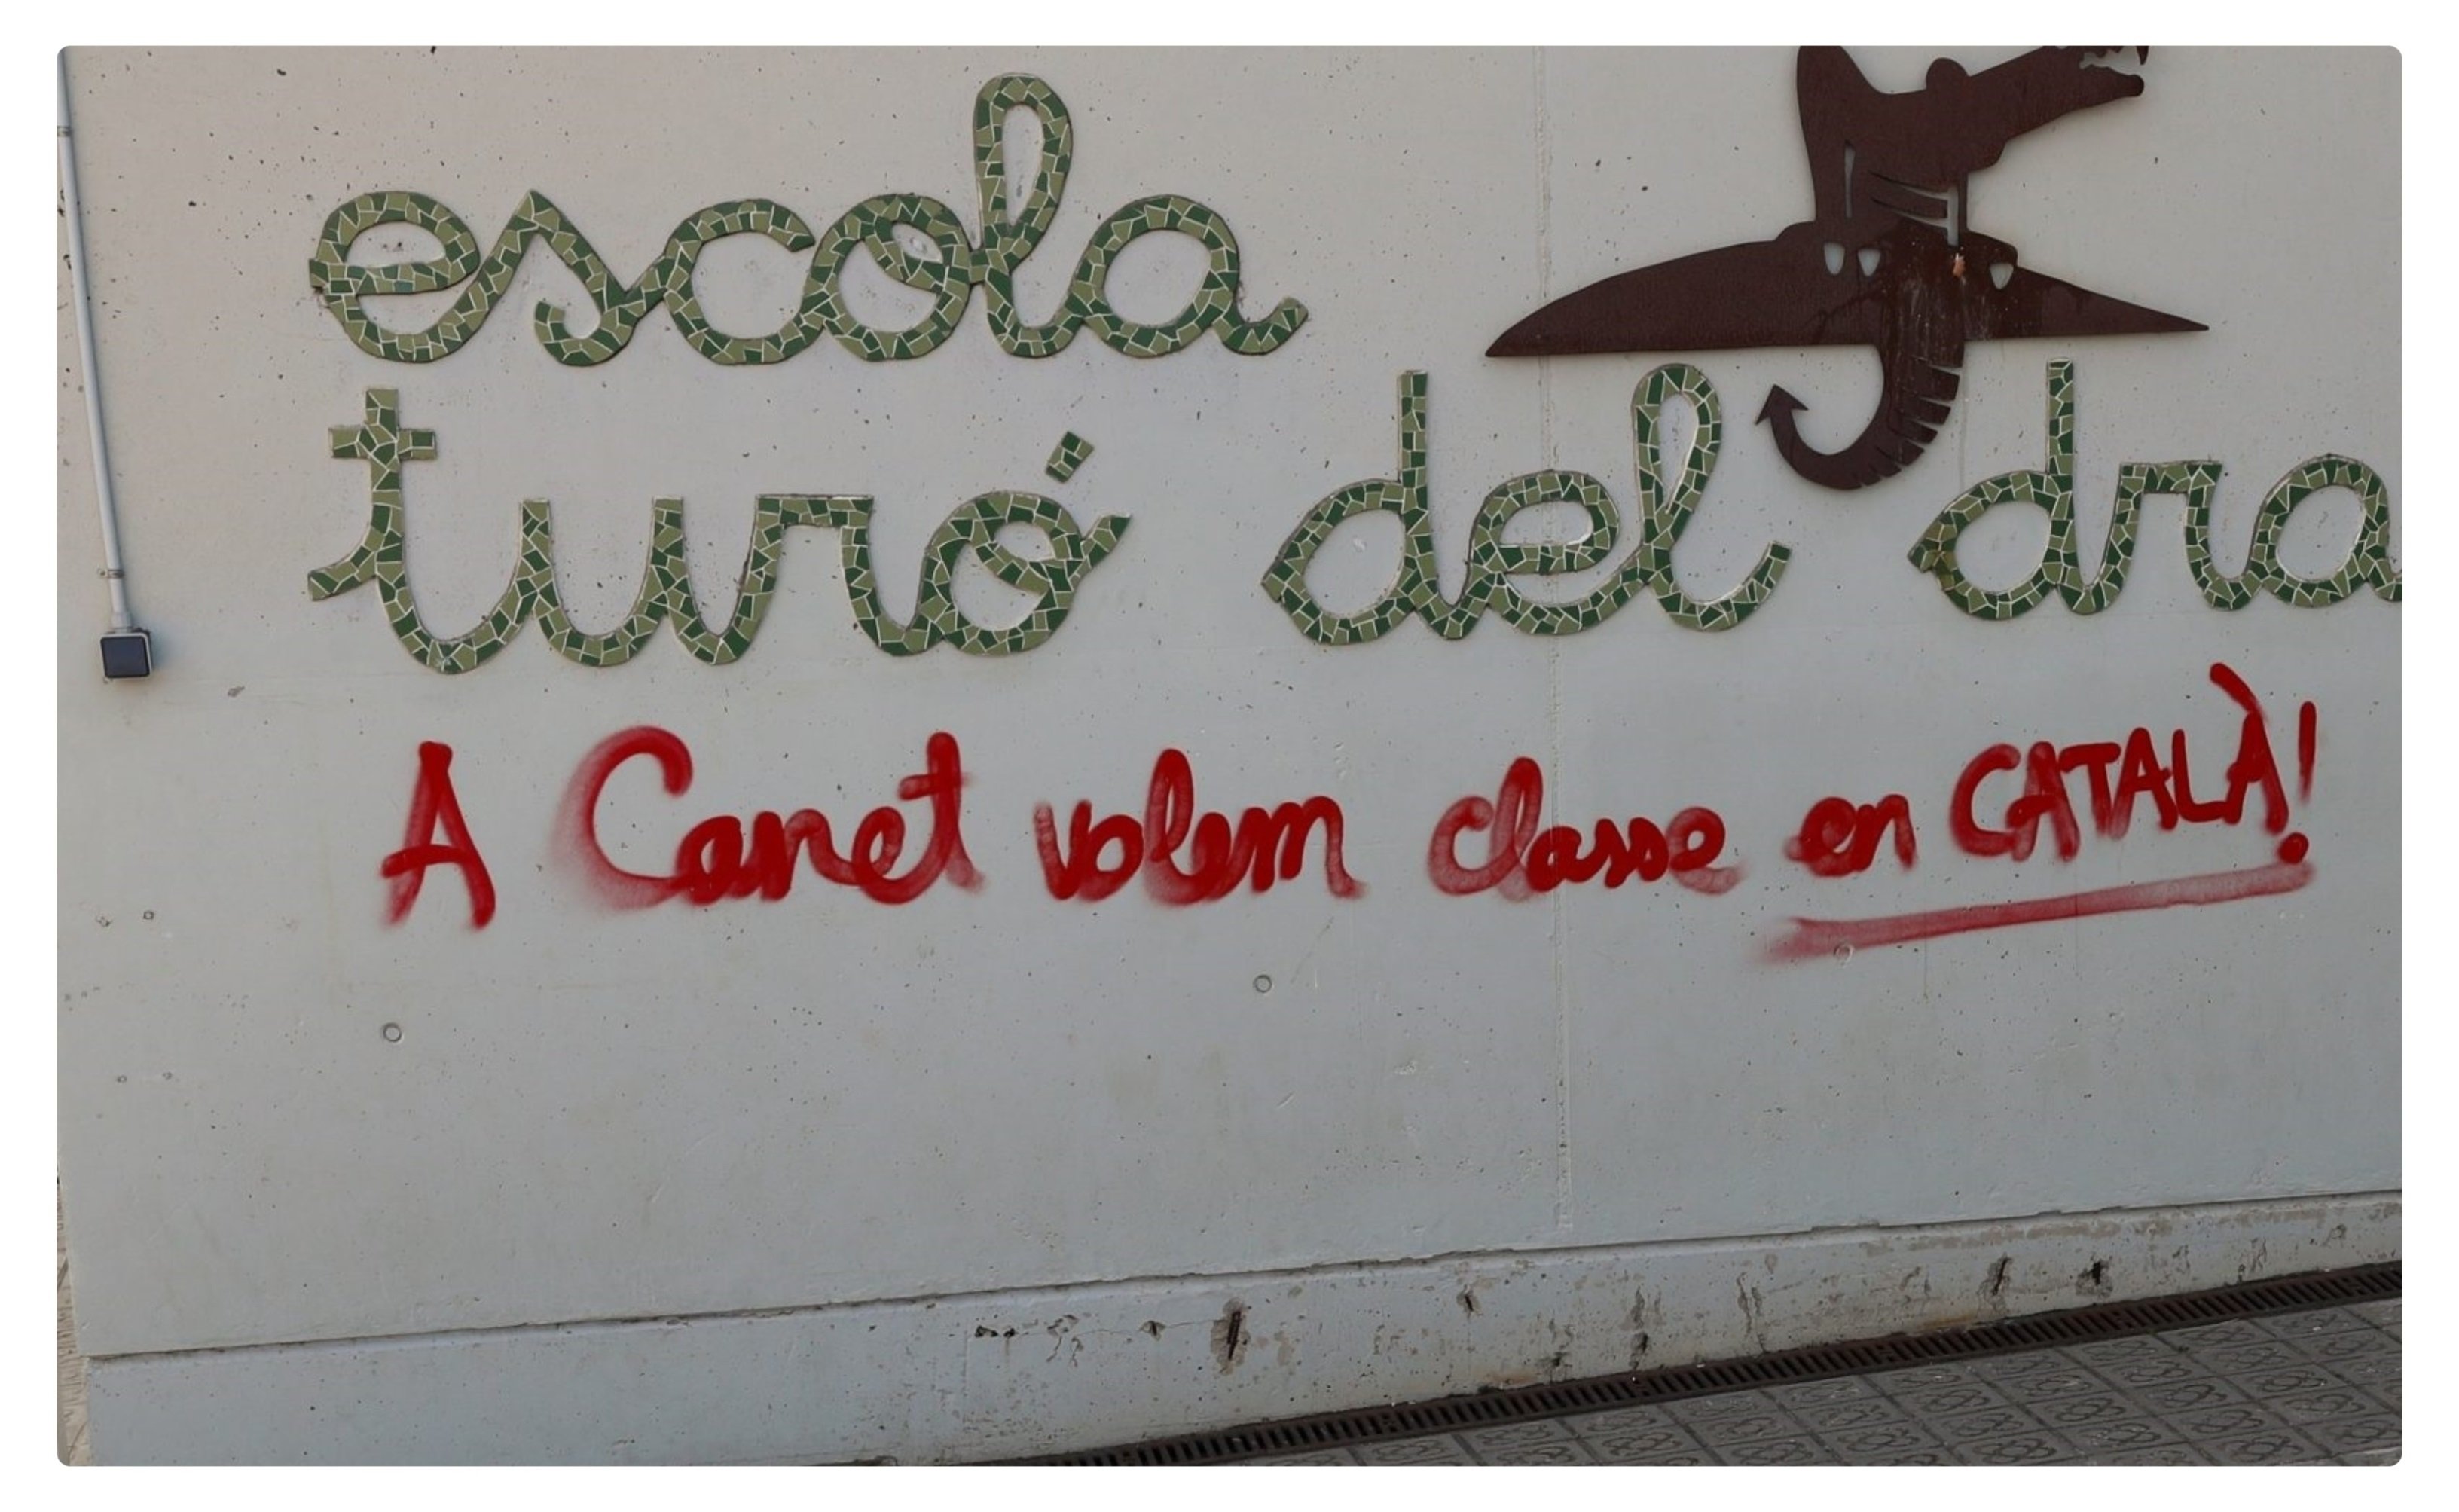 escola
turó del dra
A Canet volem classe en CATALÀ!